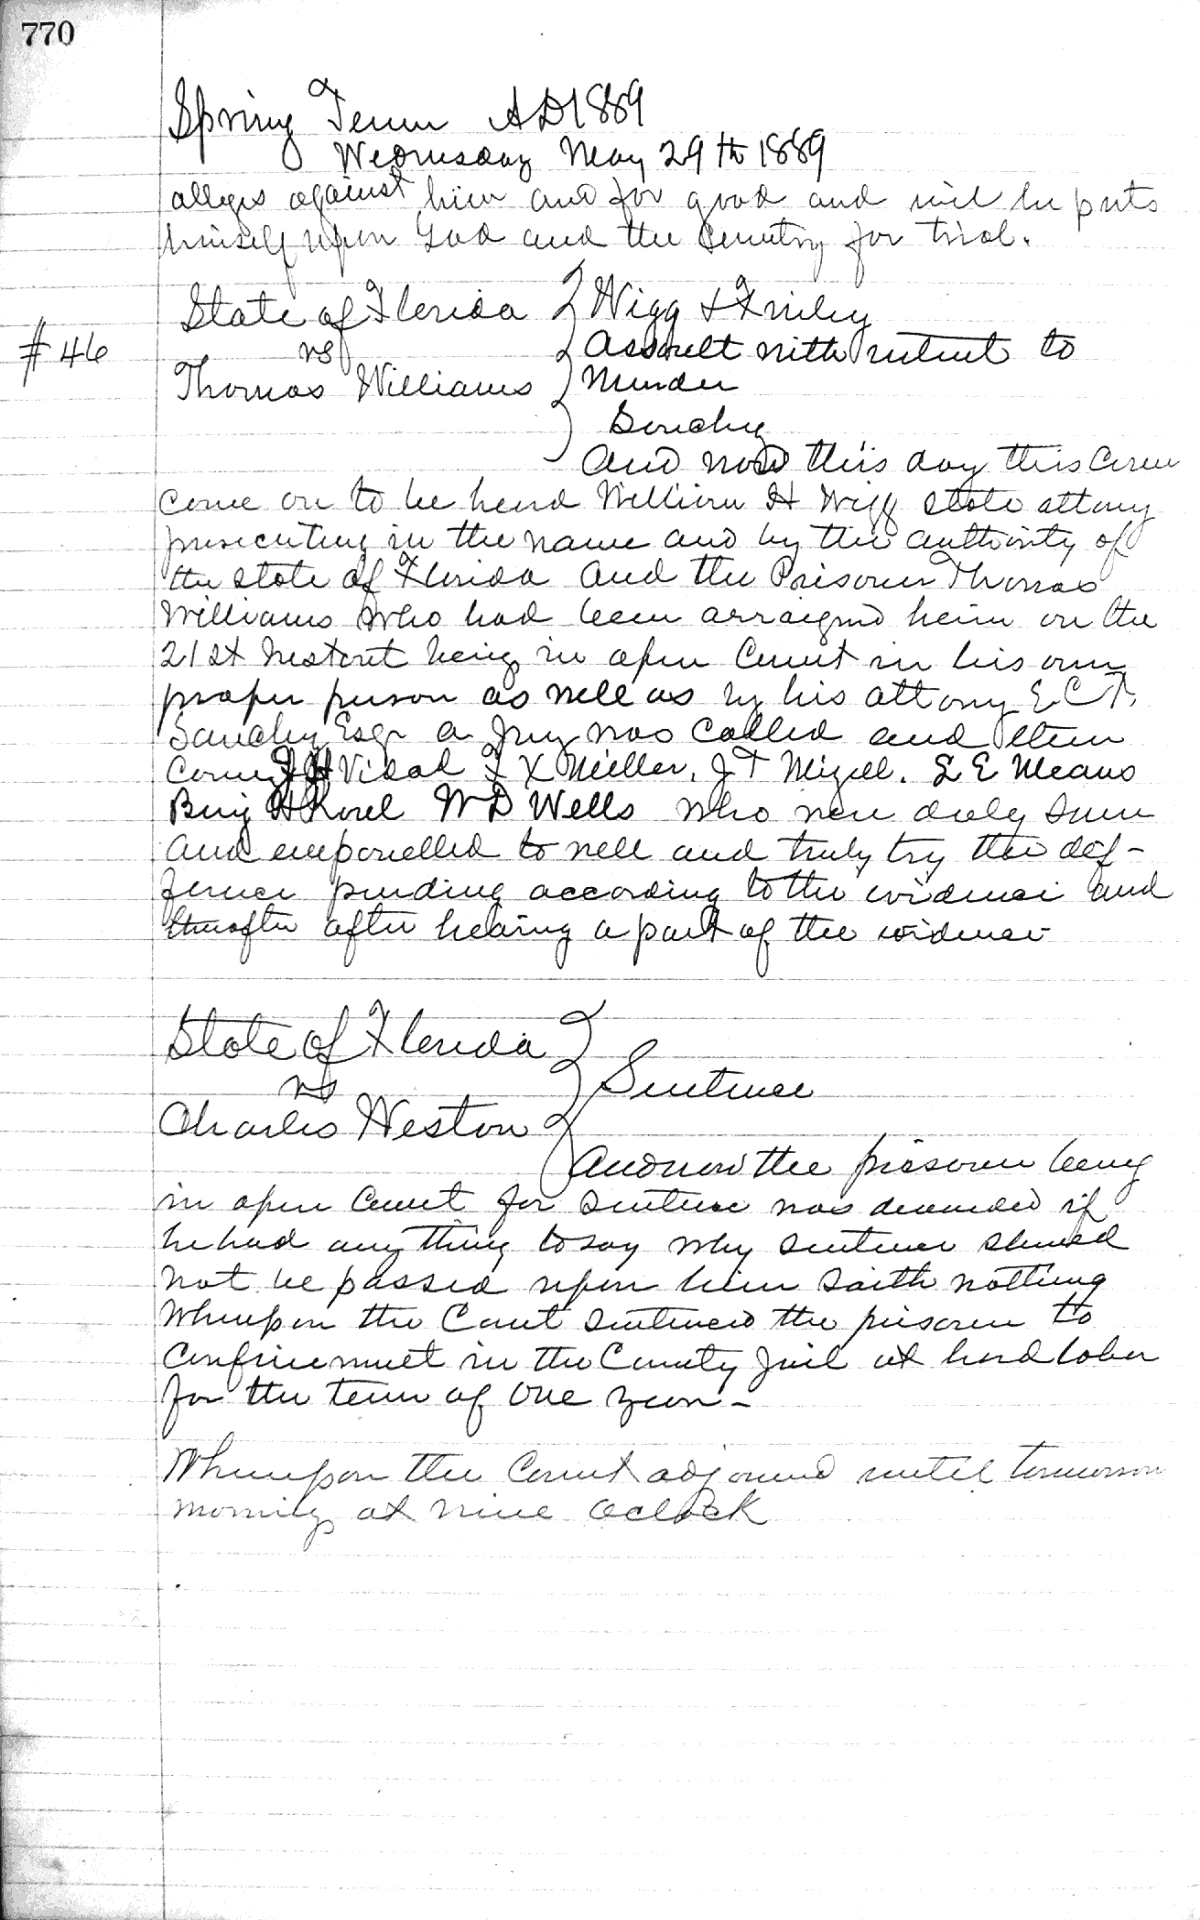 770
Spring Term AD 1889
Wednesday May 29th 1889
alleges against him and for good and ill he puts
himself upon God and the Country for trial.
State of Florida Wigg &
#46
vs Assault with intent to
Thomas Williams Murder
Sanchez
And now this day this cause
come on to be heard William H Wigg State attony
prosecuting in the name and by the authority of
the State of Florida and the Prisoner Thomas
Williams who had been arraigned herein on the
21st Instant being in open Court in his own
proper person as well as by his attony E C F
Sanchez Esqr a Jury was called and then
Come Vidal F X Miller, J T Mizell. L E Means
Benj W D Wells who were duly sworn
and empanelled to well and truly try the dif-
ference pending according to the evidence and
thereafter after hearing a part of the evidence
State of Florida
vs Sentence
Charles Weston
And now the prisoner being
in open Court for sentence was demanded if
he had any thing to say why sentence should
not be passed upon him saith nothing
Whereupon the Court sentenced the prisoner to
Confinement in the County Jail at hard labor
for the term of one year –
Whereupon the Court adjourned until tomorrow
morning at nine Oclock